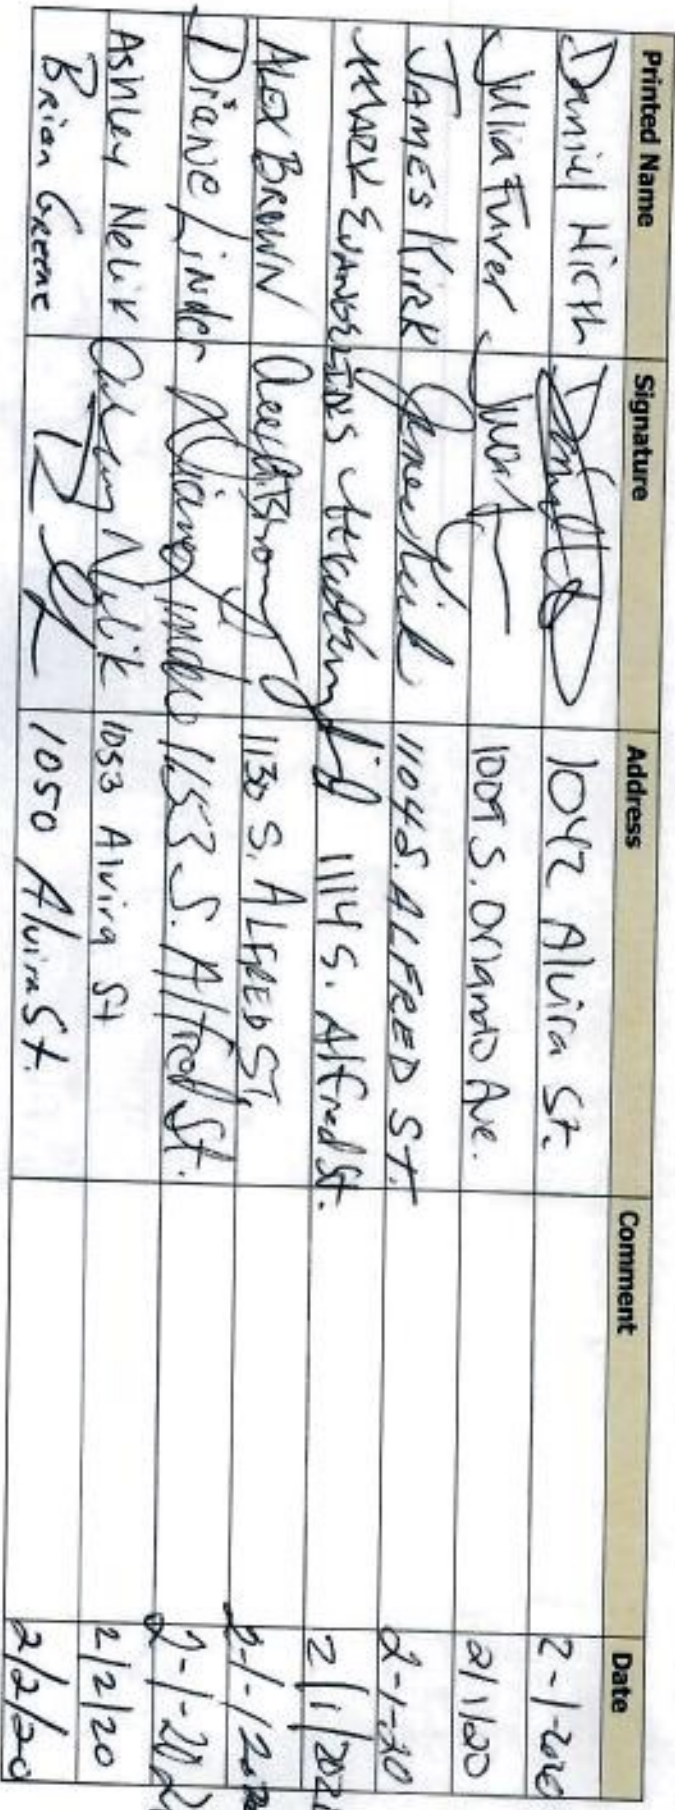 Printed Name Signature Address Comment Date
Daniel Hirth 1042 Alvira St. 2-1-2020
Julia Furer 1009 S. Orlando Ave. 2/1/20
JAMES KIRK 1104 S. ALFRED ST. 2-1-20
MARK EVANGELINS 1114 S. Alfred St. 2/1/202
ALEX BROWN 1130 S. ALFRED ST, 2-1-120
Diane Linder Diane Linder 1153 S. Alfred St. 2-1-202
Ashley Nelik Ashley Nelik 1053 Alvira St 2/2/20
Brian Greene 1050 Alvira St. 2/2/20